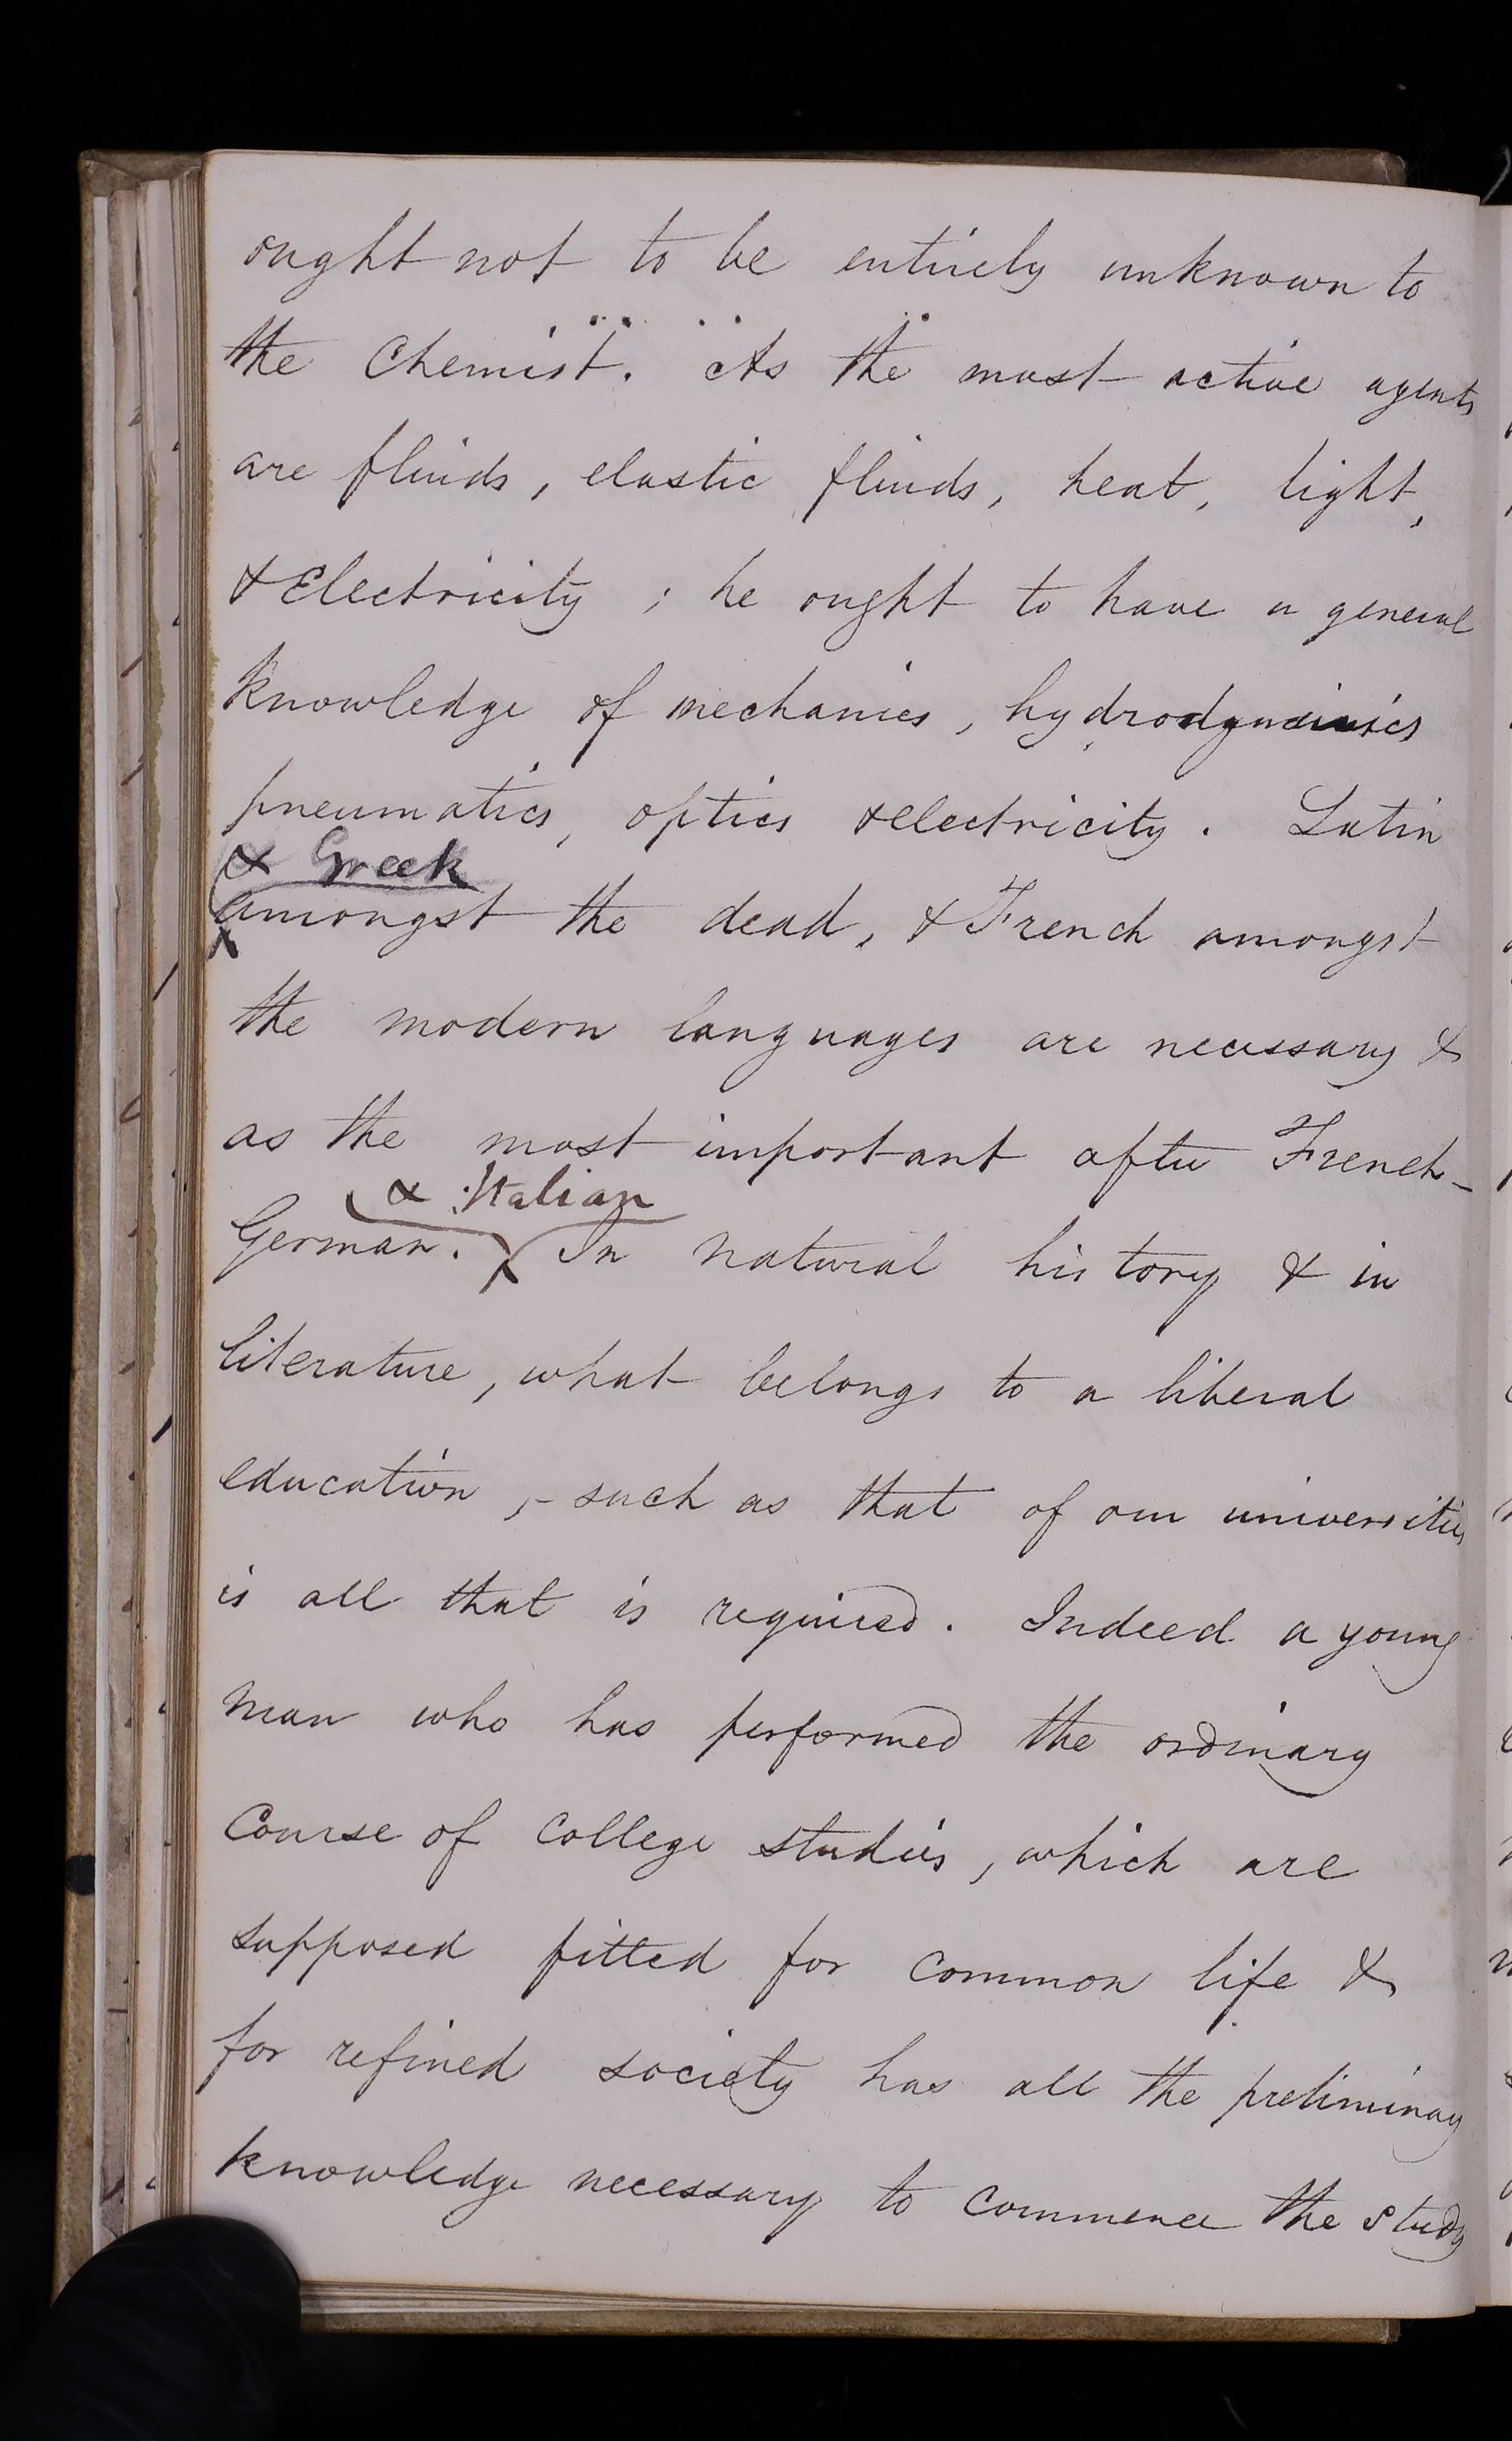 ought not to be entirely unknown to
the Chemist. As the most active agents
are fluids, elastic fluids, heat, light,
& Electricity ; he ought to have a general
knowledge of mechanics, hydrodynamics
pneumatics, optics & electricity. Latin
& Greek
amongst the dead, & French amongst
the modern languages are necessary &
as the most important after French -
& Italian
German. In natural history & in
literature, what belongs to a liberal
education, - such as that of our universities
is all that is required. Indeed a young
man who has performed the ordinary
Course of College studies, which are
supposed fitted for common life &
for refined society has all the preliminary
knowledge necessary to commence the study